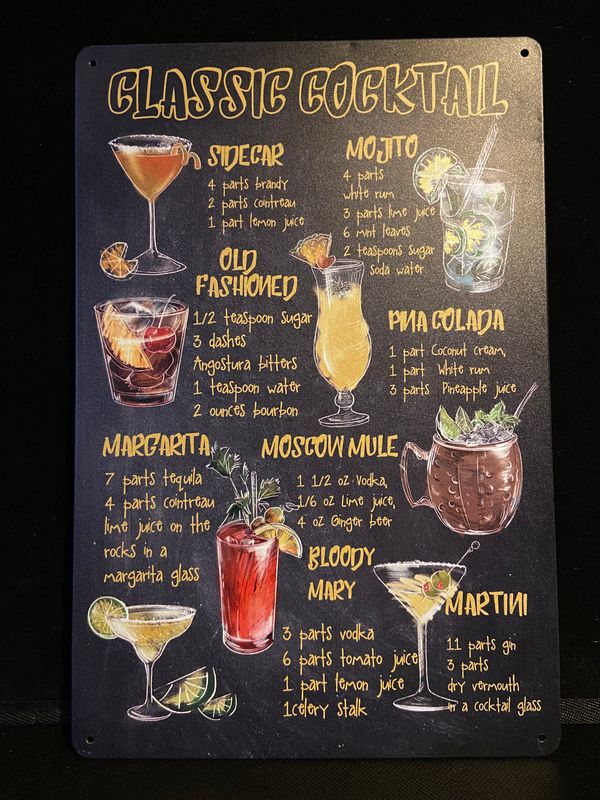 CLASSIC COCKTAIL
SIDECAR
4 parts brandy
2 parts cointreau
1 part lemon juice
MOJITO
4 parts
white rum
3 parts lime juice
6 mint leaves
2 teaspoons sugar
soda water
OLD
FASHIONED
1/2 teaspoon sugar
3 dashes
Angostura bitters
1 teaspoon water
2 ounces bourbon
PINA COLADA
1 part Coconut cream,
1 part White rum
3 parts Pineapple juice
MARGARITA
7 parts tequila
4 parts cointreau
lime juice on the
rocks in a
margarita glass
MOSCOW MULE
1 1/2 oz Vodka,
1/6 oz Lime juice,
4 oz Ginger beer
BLOODY
MARY
3 parts vodka
6 parts tomato juice
1 part lemon juice
1celery stalk
MARTINI
11 parts gin
3 parts
dry vermouth
in a cocktail glass